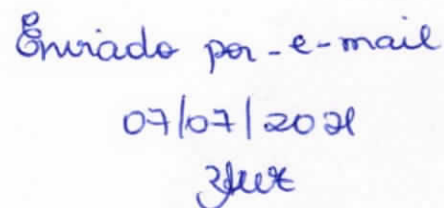 Enviado por-e-mail
07/07/2021